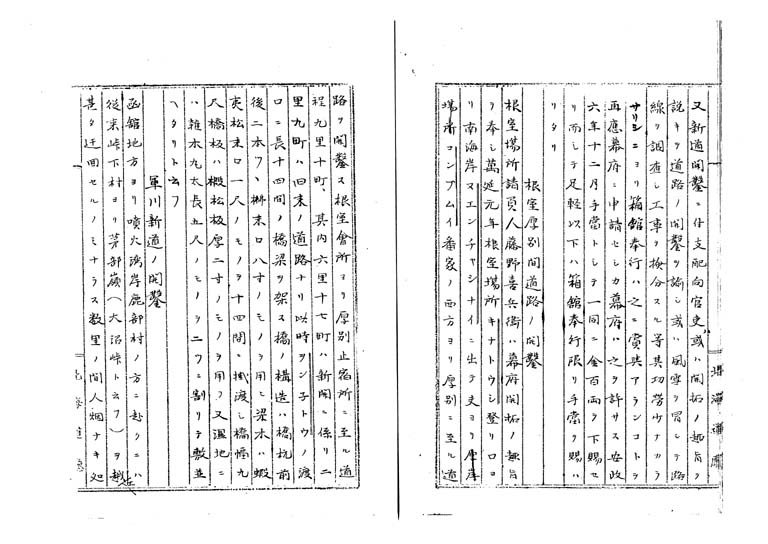 又新道開鑿ニ付支配向官吏或ハ開拓ノ趣旨ヲ
説キテ道路ノ開鑿ヲ諭シ或ハ風雪ヲ冒シテ路
線ヲ調査シ工事ヲ検分スル等其功労少ナカラ
サリシニヨリ箱館奉行ハ之ニ賞典アランコトヲ
再應幕府ニ申請セシカ幕府ハ之ヲ許サス安政
六年十二月手當トシテ一同ニ金百両ヲ下賜セ
リ而シテ足軽以下ハ箱館奉行限リ手當ヲ賜ハ
リタリ
根室厚別間道路ノ開鑿
根室場所請負人藤野喜兵衛ハ幕府開拓ノ趣旨
ヲ奉シ萬延元年根室場所キナトウシ登リ口ヨ
リ南海岸ヌエンチャシナイニ出テ夫ヨリ厚岸
場所コンブムイ番家ノ西方ヨリ厚別ニ至ル道
路ヲ開鑿ス根室會所ヨリ厚別止宿所ニ至ル道
程九里十町、其内六里十七町ハ新開ニ係リ二
里九町ハ旧来ノ道路ナリ以時ヲンネトウノ渡
口ニ長十四間ノ橋梁ヲ架ス橋ノ構造ハ橋杭前
後二本ツヽ椴末口八寸ノモノヲ用ヒ梁木ハ蝦
夷松末口一尺ノモノヲ十四間ニ掛渡シ橋幅九
尺橋板ハ椴松板厚二寸ノモノヲ用フ又湿地ニ
ハ雑木丸太長五尺ノモノヲ二ツニ割リテ敷並
ヘタリト云フ
軍川新道ノ開鑿
函舘地方ヨリ噴火湾岸鹿部村ノ方ニ赴クニハ
従来峠下村ヨリ茅部嶺(大沼峠ト云フ)ヲ越
甚タ迂回セルノミナラス数里ノ間人烟ナキ処